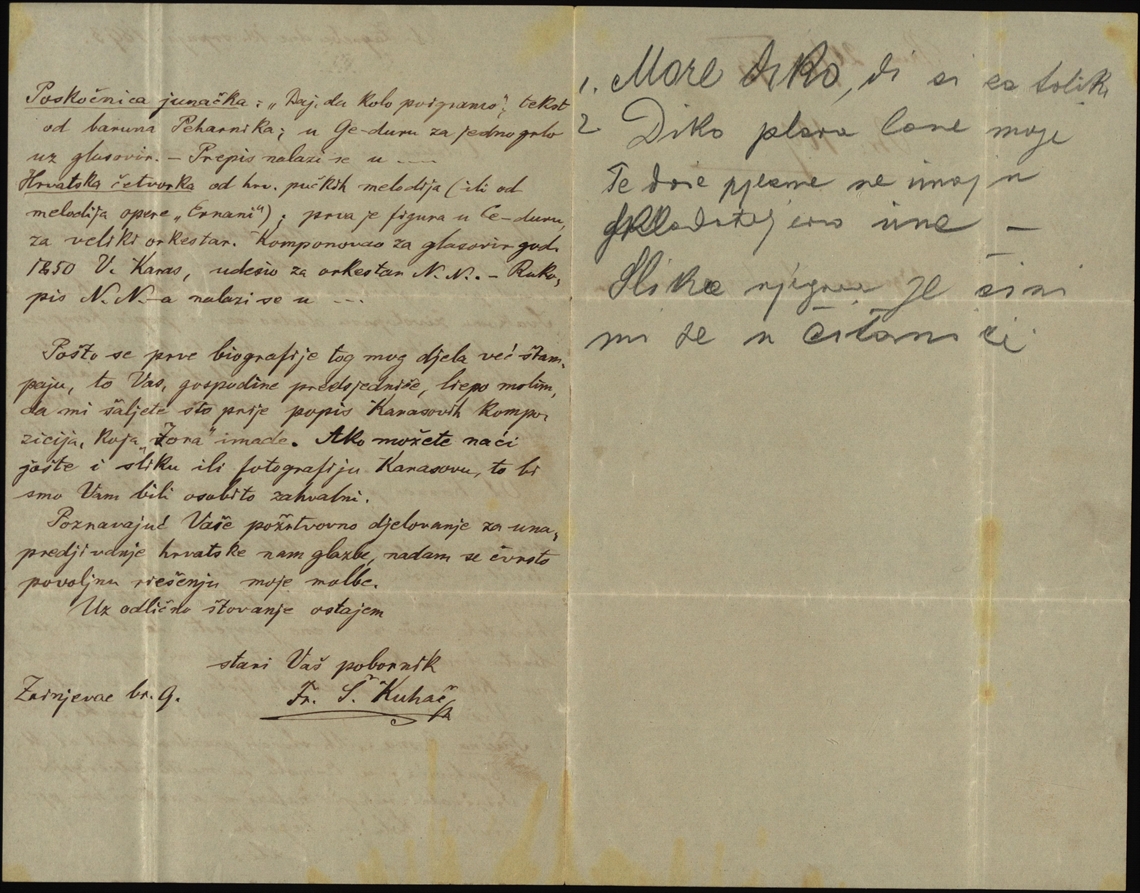 Poskočnica junačka: „Daj, da kolo poigramo“, tekst
od baruna Peharnika; u Ge-duru za jedno grlo
uz glasovir. – Prepis nalazi se u –––
Hrvatska četvorka od hrv. pučkih melodija (ili od
melodija opere „Ernani“); prva je figura u Ce-duru,
za veliki orkestar. Komponovao za glasovir god.
1850 V. Karas, udesio za orkestar N. N. – Ruko,
pis N. N–a nalazi se u –––
Pošto se prve biografije tog mog djela već štam,
paju, to Vas, gospodine predsjedniče, liepo molim,
da mi šaljete što prije popis Karasovih kompo,
zicija, koja „Zora“ imade. Ako možete naći
jošte i sliku ili fotografiju Karasovu, to bi
smo Vam bili osobito zahvalni.
Poznavajuć Vaše požrtvovno djelovanje za una,
predjivanje hrvatske nam glazbe, nadam se čvrsto
povoljnu riešenju moje molbe.
Uz odlično štovanje ostajem
stari Vaš pobornik
Zrinjevac br. 9. Fr. Š. Kuhač
1. More diko, di si za tolik
2 Diko plava lane moje
Te dvie pjesme ne imaj u
une –
Slika njegova je čini
mi se u čitaonici